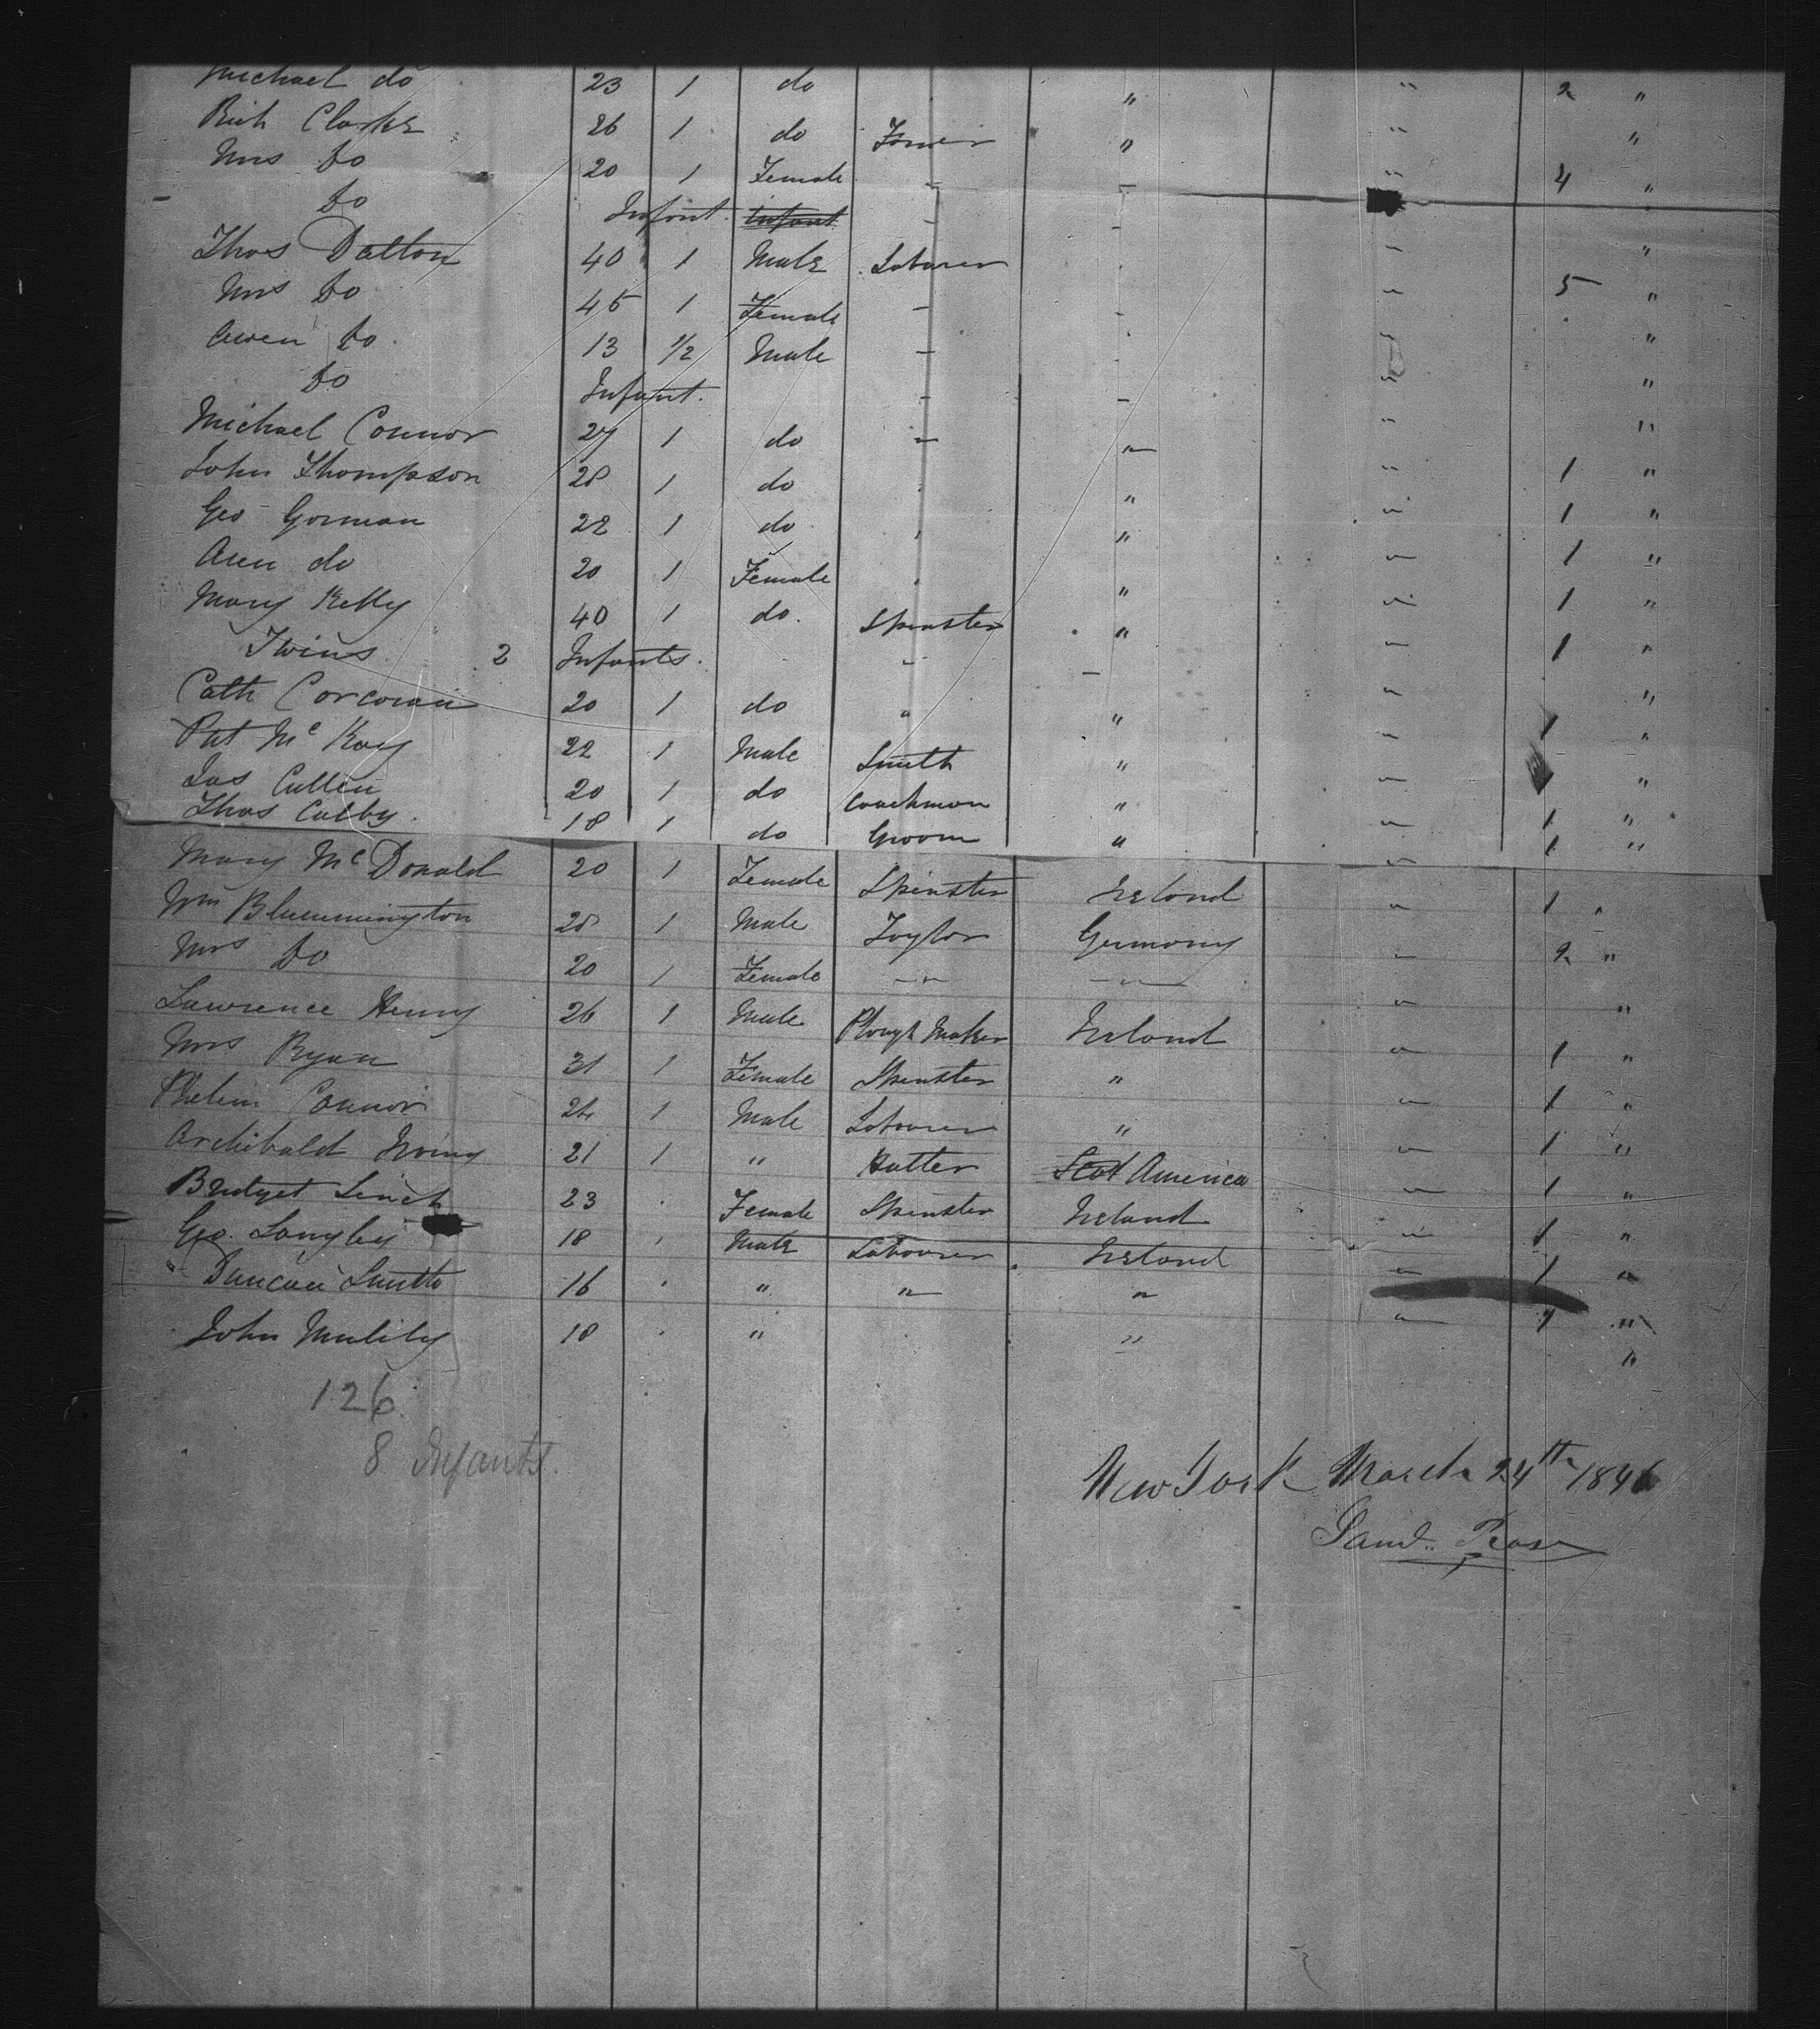 Michael do 23 1 do " " 2 "
Rich Clarke 26 1 do Farmer " " "
Mrs Do 20 1 Female " - " 4 "
Do Infant. Infant - - " "
Thos Dalton 40 1 Male Labourer - "
Mrs Do 45 1 Female - - " 5 "
Owen Do 13 1/2 Male - - " "
Do Infant. - - " "
Michael Connor 27 1 do " " " "
John Thompson 28 1 do " " " 1 "
Geo Gorman 22 1 do " " " 1 "
Ann do 20 1 Female " " " 1 "
Mary Kelly 40 1 do. Spinster " " 1 "
Twins 2 Infants. " - " 1 "
Cath Corcoran 20 1 do " " " "
Pat McKay 22 1 Male Smith " " 1 "
Jas Cullen 20 1 do Coachman " " "
Thos Culby. 18 1 do Groom " " 1 "
Mary McDonald 20 1 Female Spinster Ireland " 1 "
Wm Blummington 28 1 Male Taylor Germany " 2 "
Mrs Do 20 1 Female " " " "
Lawrence Henry 26 1 Male Plough Maker Ireland " 1 "
Mrs Ryan 31 1 Female Spinster " " 1 "
Phelim Connor 24 1 Male Labourer " " 1 "
Archibald Irving 21 1 " Hatter Scot America " 1 "
Bridget Linch 23 . Female Spinster Ireland " 1 "
Geo. Langley 18 . Male Labourer Ireland " 1 "
Duncan Smith 16 . " " " " 1 "
John 18 . " " "
126
8 Infants.
New York March 24th 1846
Saml. Rose